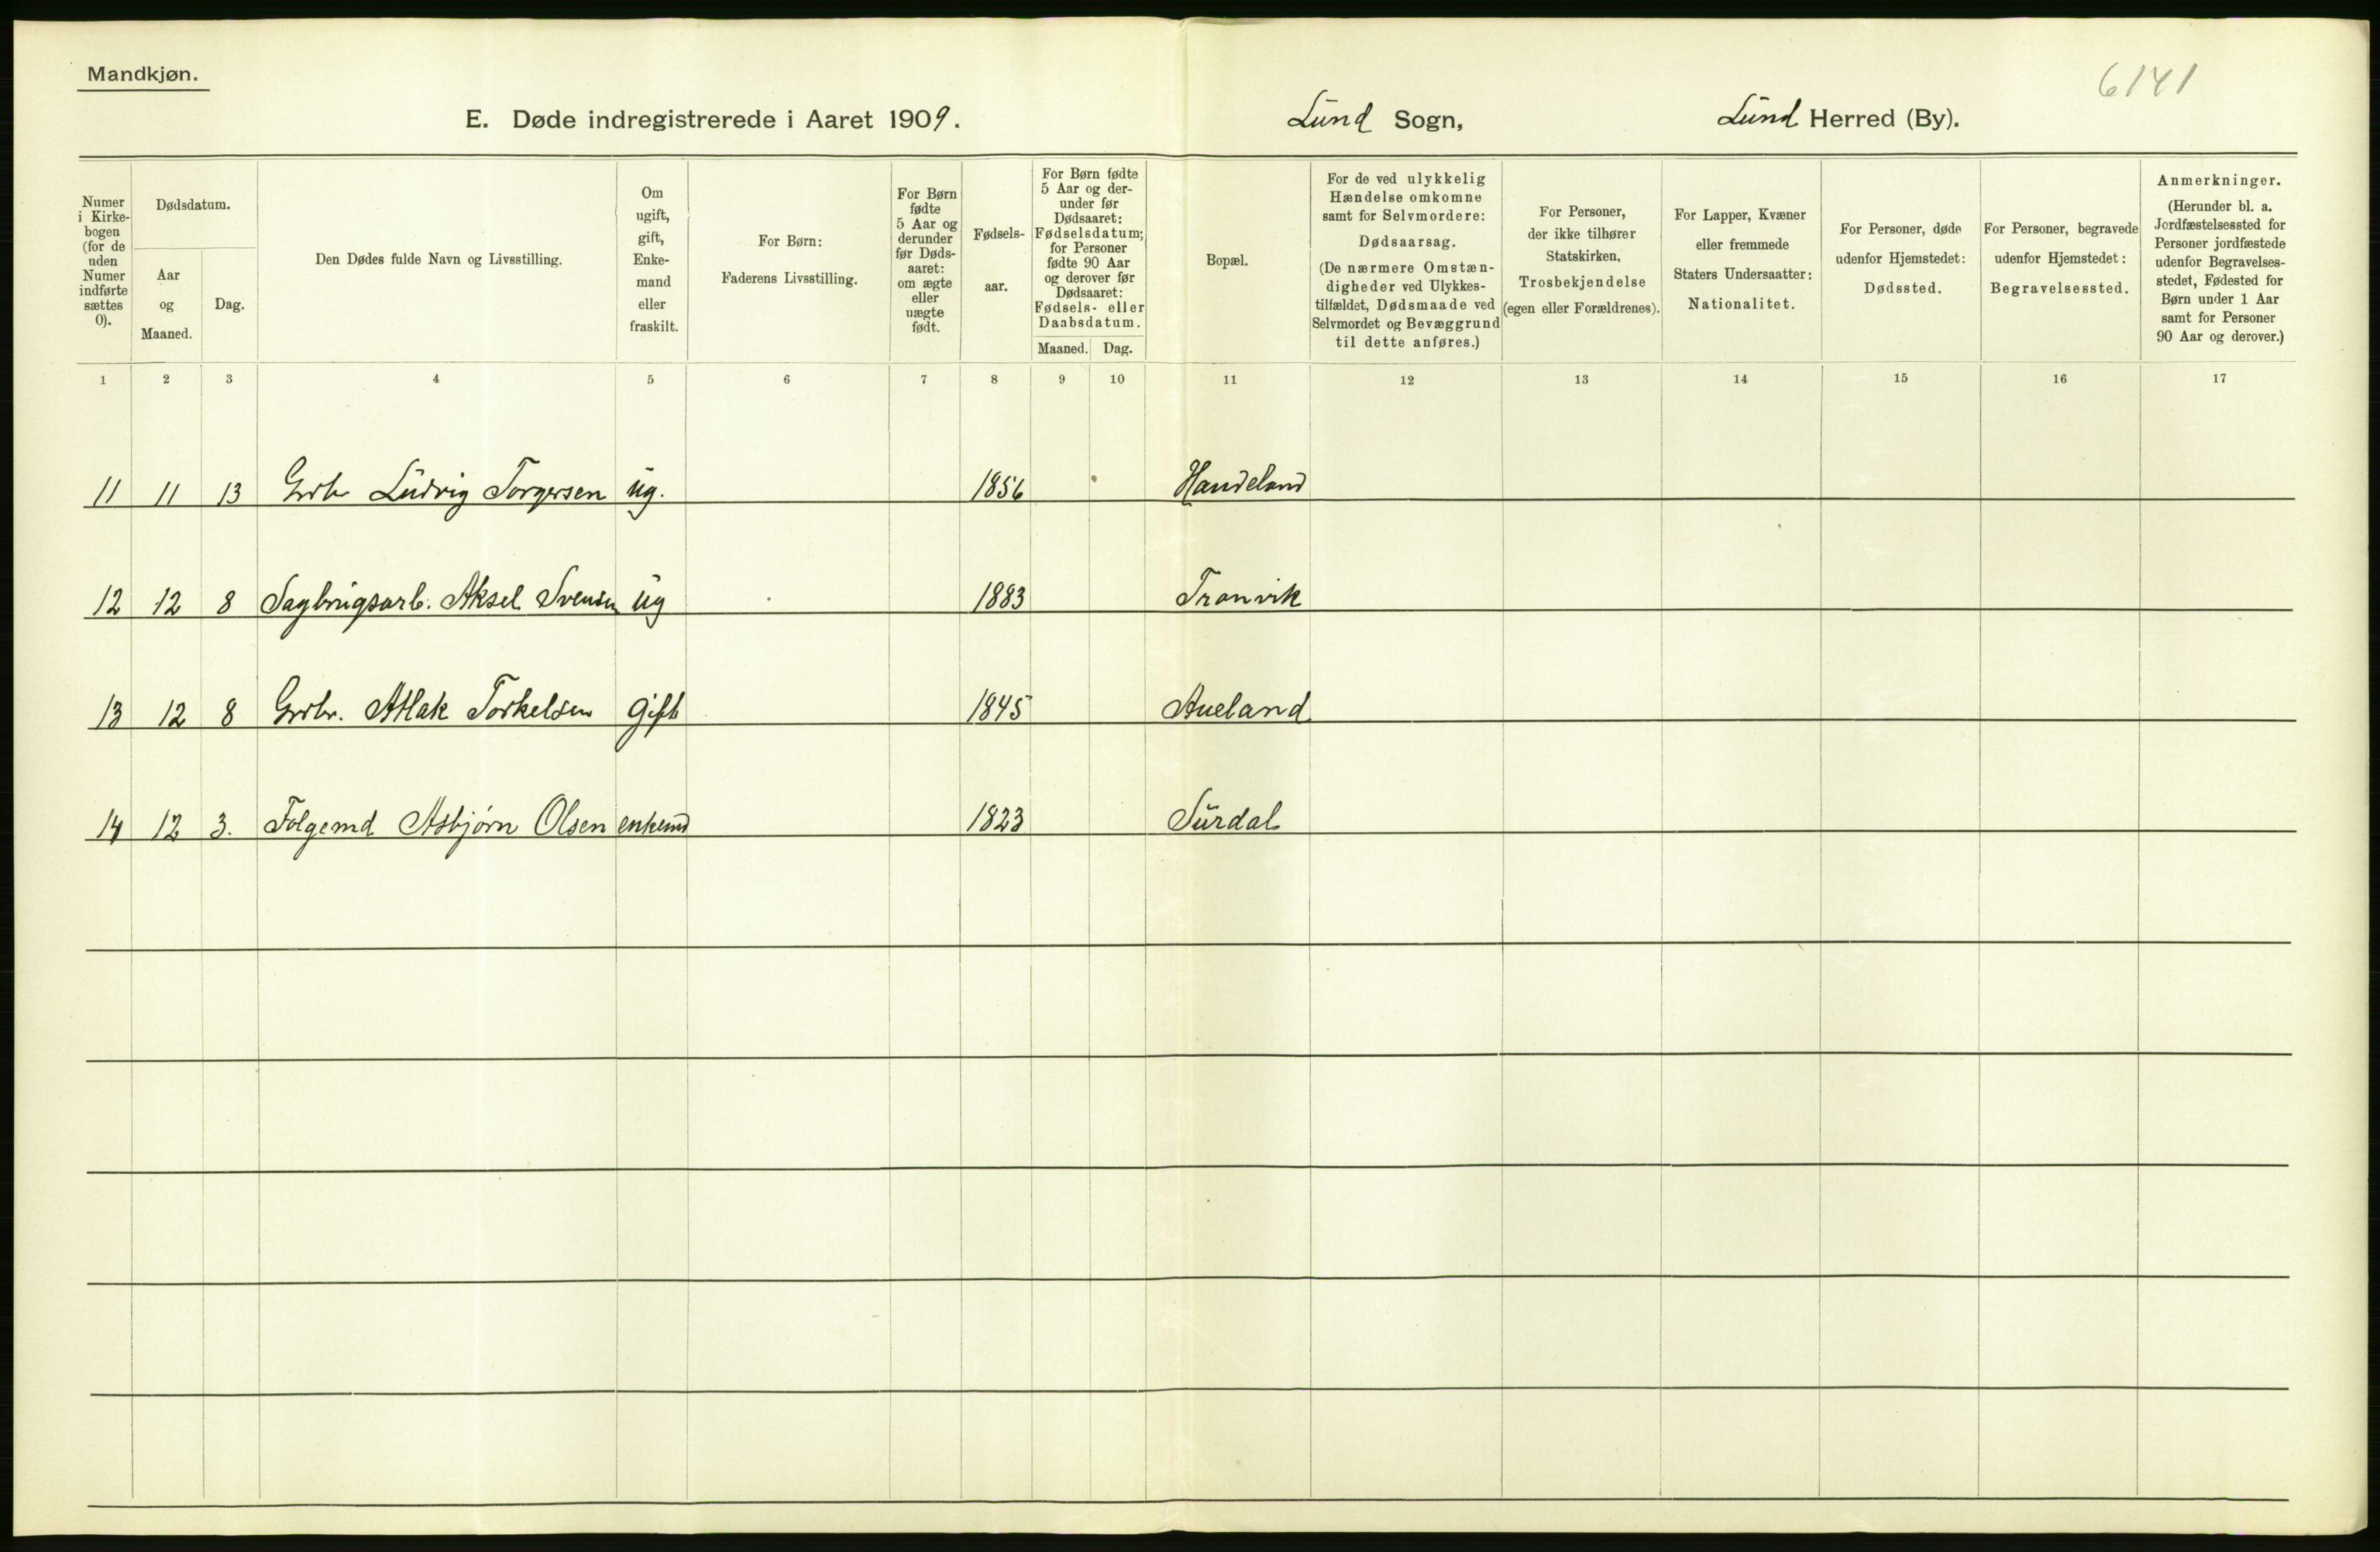 Mandkjøn.
6141
E. Døde indregistrerede i Aaret 1909. Lund Sogn, Lund Herred (By).
Numer i Kirke-bogen (for de uden Numer indførte sættes 0).
Dødsdatum.
Aar og Maaned.
Dag.
Den Dødes fulde Navn og Livsstilling.
Om ugift, gift, Enke-mand eller fraskilt.
For Børn: Faderens Livsstilling.
For Børn fødte 5 Aar og derunder før Døds-aaret: om ægte eller uægte født.
Fødsels-aar.
For Børn fødte 5 Aar og der-under før Dødsaaret: Fødselsdatum; for Personer fødte 90 Aar og derover før Dødsaaret: Fødsels- eller Daabsdatum.
Maaned. Dag.
Bopæl.
For de ved ulykkelig Hændelse omkomne samt for Selvmordere: Dødsaarsag. (De nærmere Omstæn-digheder ved Ulykkes-tilfældet, Dødsmaade ved Selvmordet og Bevæggrund til dette anføres.)
For Personer, der ikke tilhører Statskirken, Trosbekjendelse (egen eller Forældrenes).
For Lapper, Kvæner eller fremmede Staters Undersaatter: Nationalitet.
For Personer, døde udenfor Hjemstedet: Dødssted.
For Personer, begravede udenfor Hjemstedet: Begravelsessted.
Anmerkninger. (Herunder bl. a. Jordfæstelsessted for Personer jordfæstede udenfor Begravelses-stedet, Fødested for Børn under 1 Aar samt for Personer 90 Aar og derover.)
1 2 3 4 5 6 7 8 9 10 11 12 13 14 15 16 17
11 11 13 Grbr Ludvig Torgersen ug. 1856 Haudeland
12 12 8 Sagbrugsarb. Aksel Svensen ug 1883 Tronvik
13 12 8 Grbr. Atlak Torkelsen gift 1845 Aueland
14 12 3. Folgemd Asbjørn Olsen enkemd 1823 Surdal